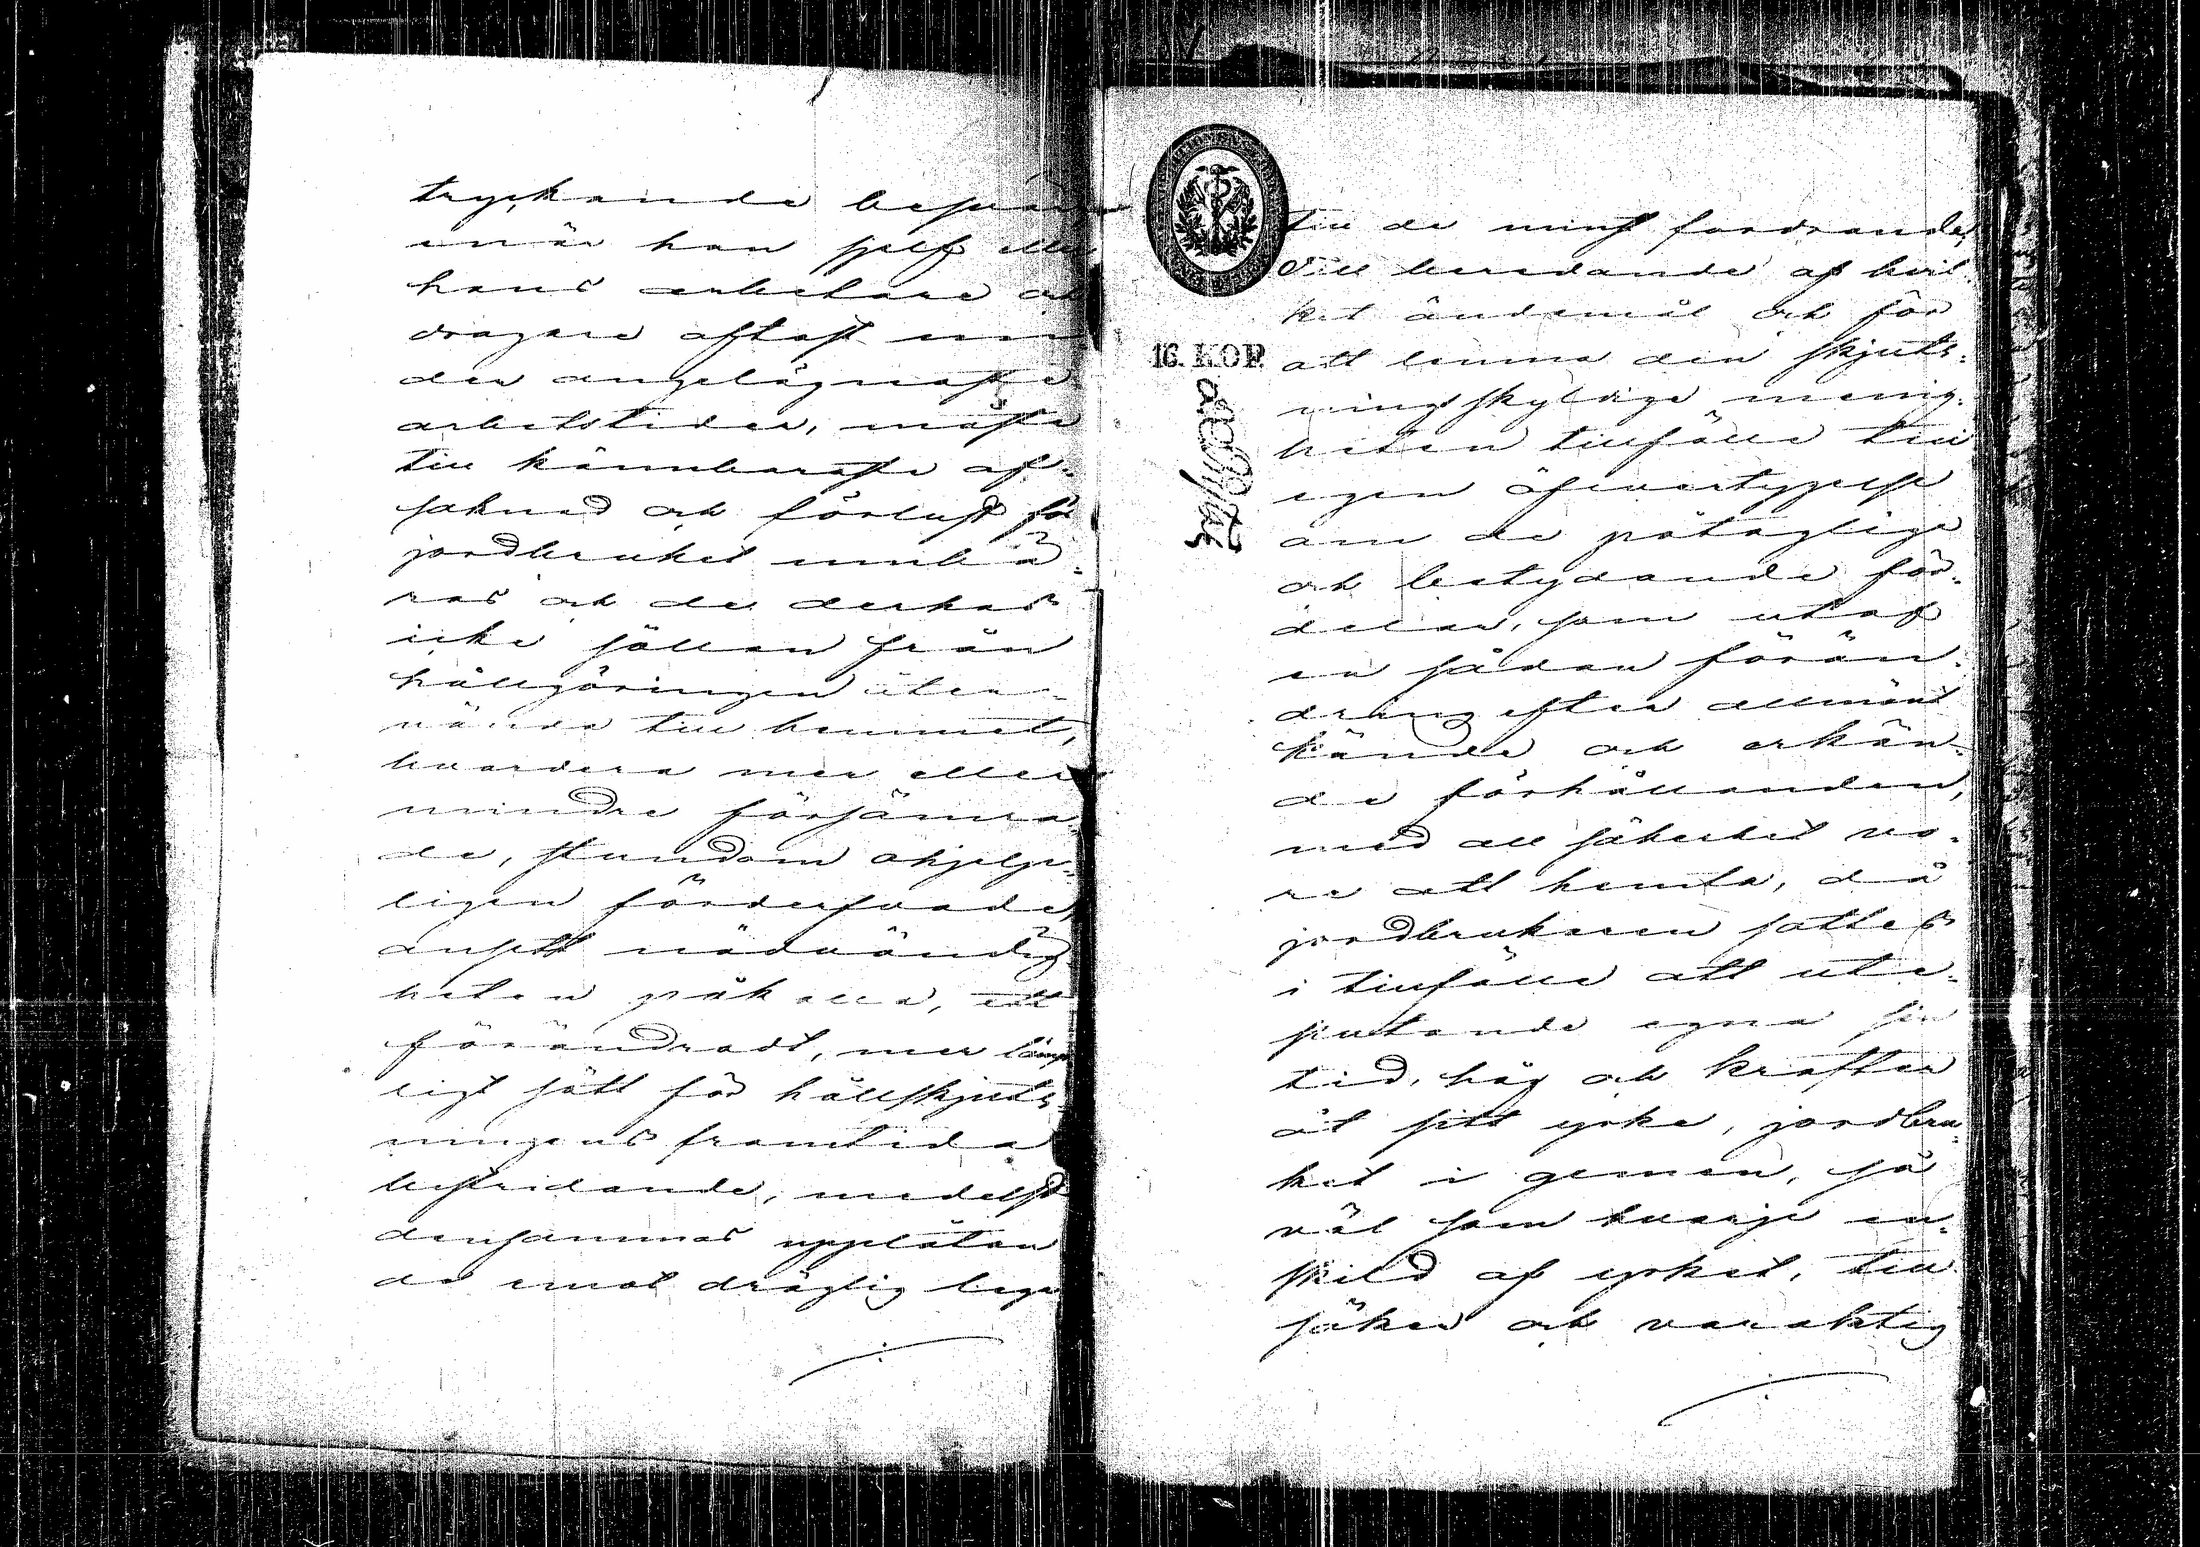 tryckande besvär
enär han sjelf eller
hans arbetare och
dragare oftast un
der angelägnaste
arbetstider, måste
till kännbaraste af-
saknad och förlust för
jordbruket umbä-
ras och de derhos
icke sällan från
hållgöringen åter-
vända till hemmet,
hvardera mer eller
mindre försämra-
de, stundom ohjelp-
ligen förderfvade,
ansett nödvändig
heten påkalla, ett
förändradt, mer lämp
ligt sätt för hållskjuts-
ningens framtida
bestridande, medelst
densammas upplåtan
de emot dräglig lega
till de minst fordrande,
Till beredande af hvil-
ket ändamål och för
att lemna den skjuts-
ningsskyldige menig-
heten tillfälle till
egen öfvertygelse
om de påtaglige
och betydande för-
delar, som utaf
en sådan förän-
dring efter allmänt
kände och erkän-
de förhållanden,
med all säkerhet vo-
re att hemta, då
jordbrukaren sattes
i tillfälle att ute-
slutande egna sin
tid, håg och krafter
åt sitt yrke, jordbru-
ket i gemen, så
väl som hvarje en-
skild af yrket, till
säker och varaktig
16. KOP.